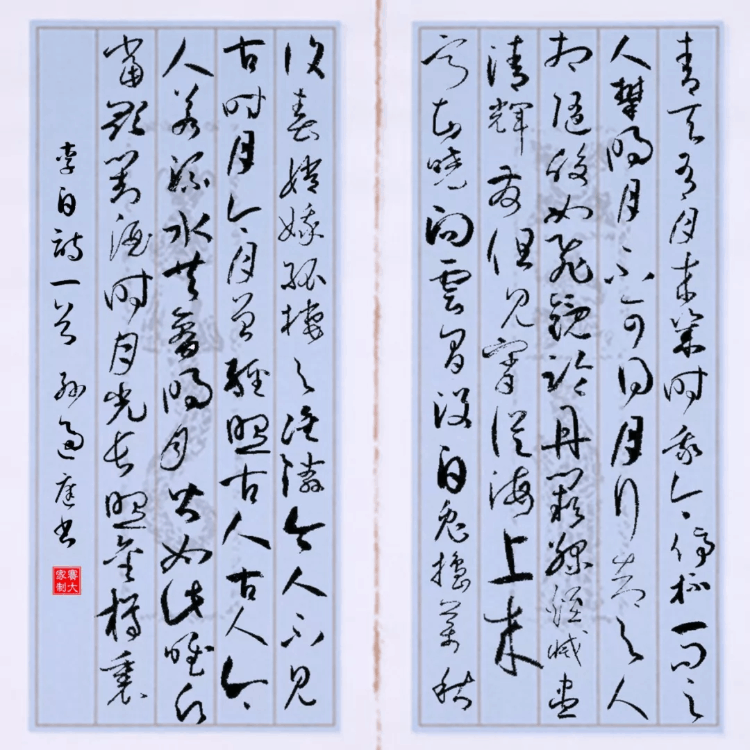 青天有月來幾時我今停杯一問之
人攀明月不可得月行卻與人
相隨皎如飛鏡臨丹闕綠煙滅盡
清輝發但見宵從海上來
寧知曉向雲間沒白兔搗藥秋
復春嫦娥孤棲與誰鄰今人不見
古時月今月曾經照古人古人今
人若流水共看明月皆如此唯願
當歌對酒時月光長照金樽裏
李白詩一首 孫過庭書